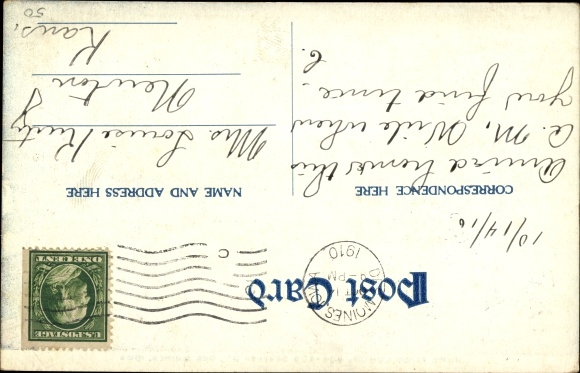 Post Card
DES MOINES, IOWA
PM
1910
C
U.S. POSTAGE
ONE CENT
10/14/10
CORRESPONDENCE HERE
Arrived home this
A.M. Write when
you find time.
C.
NAME AND ADDRESS HERE
Mrs. Louise
Newton
Kans.
50